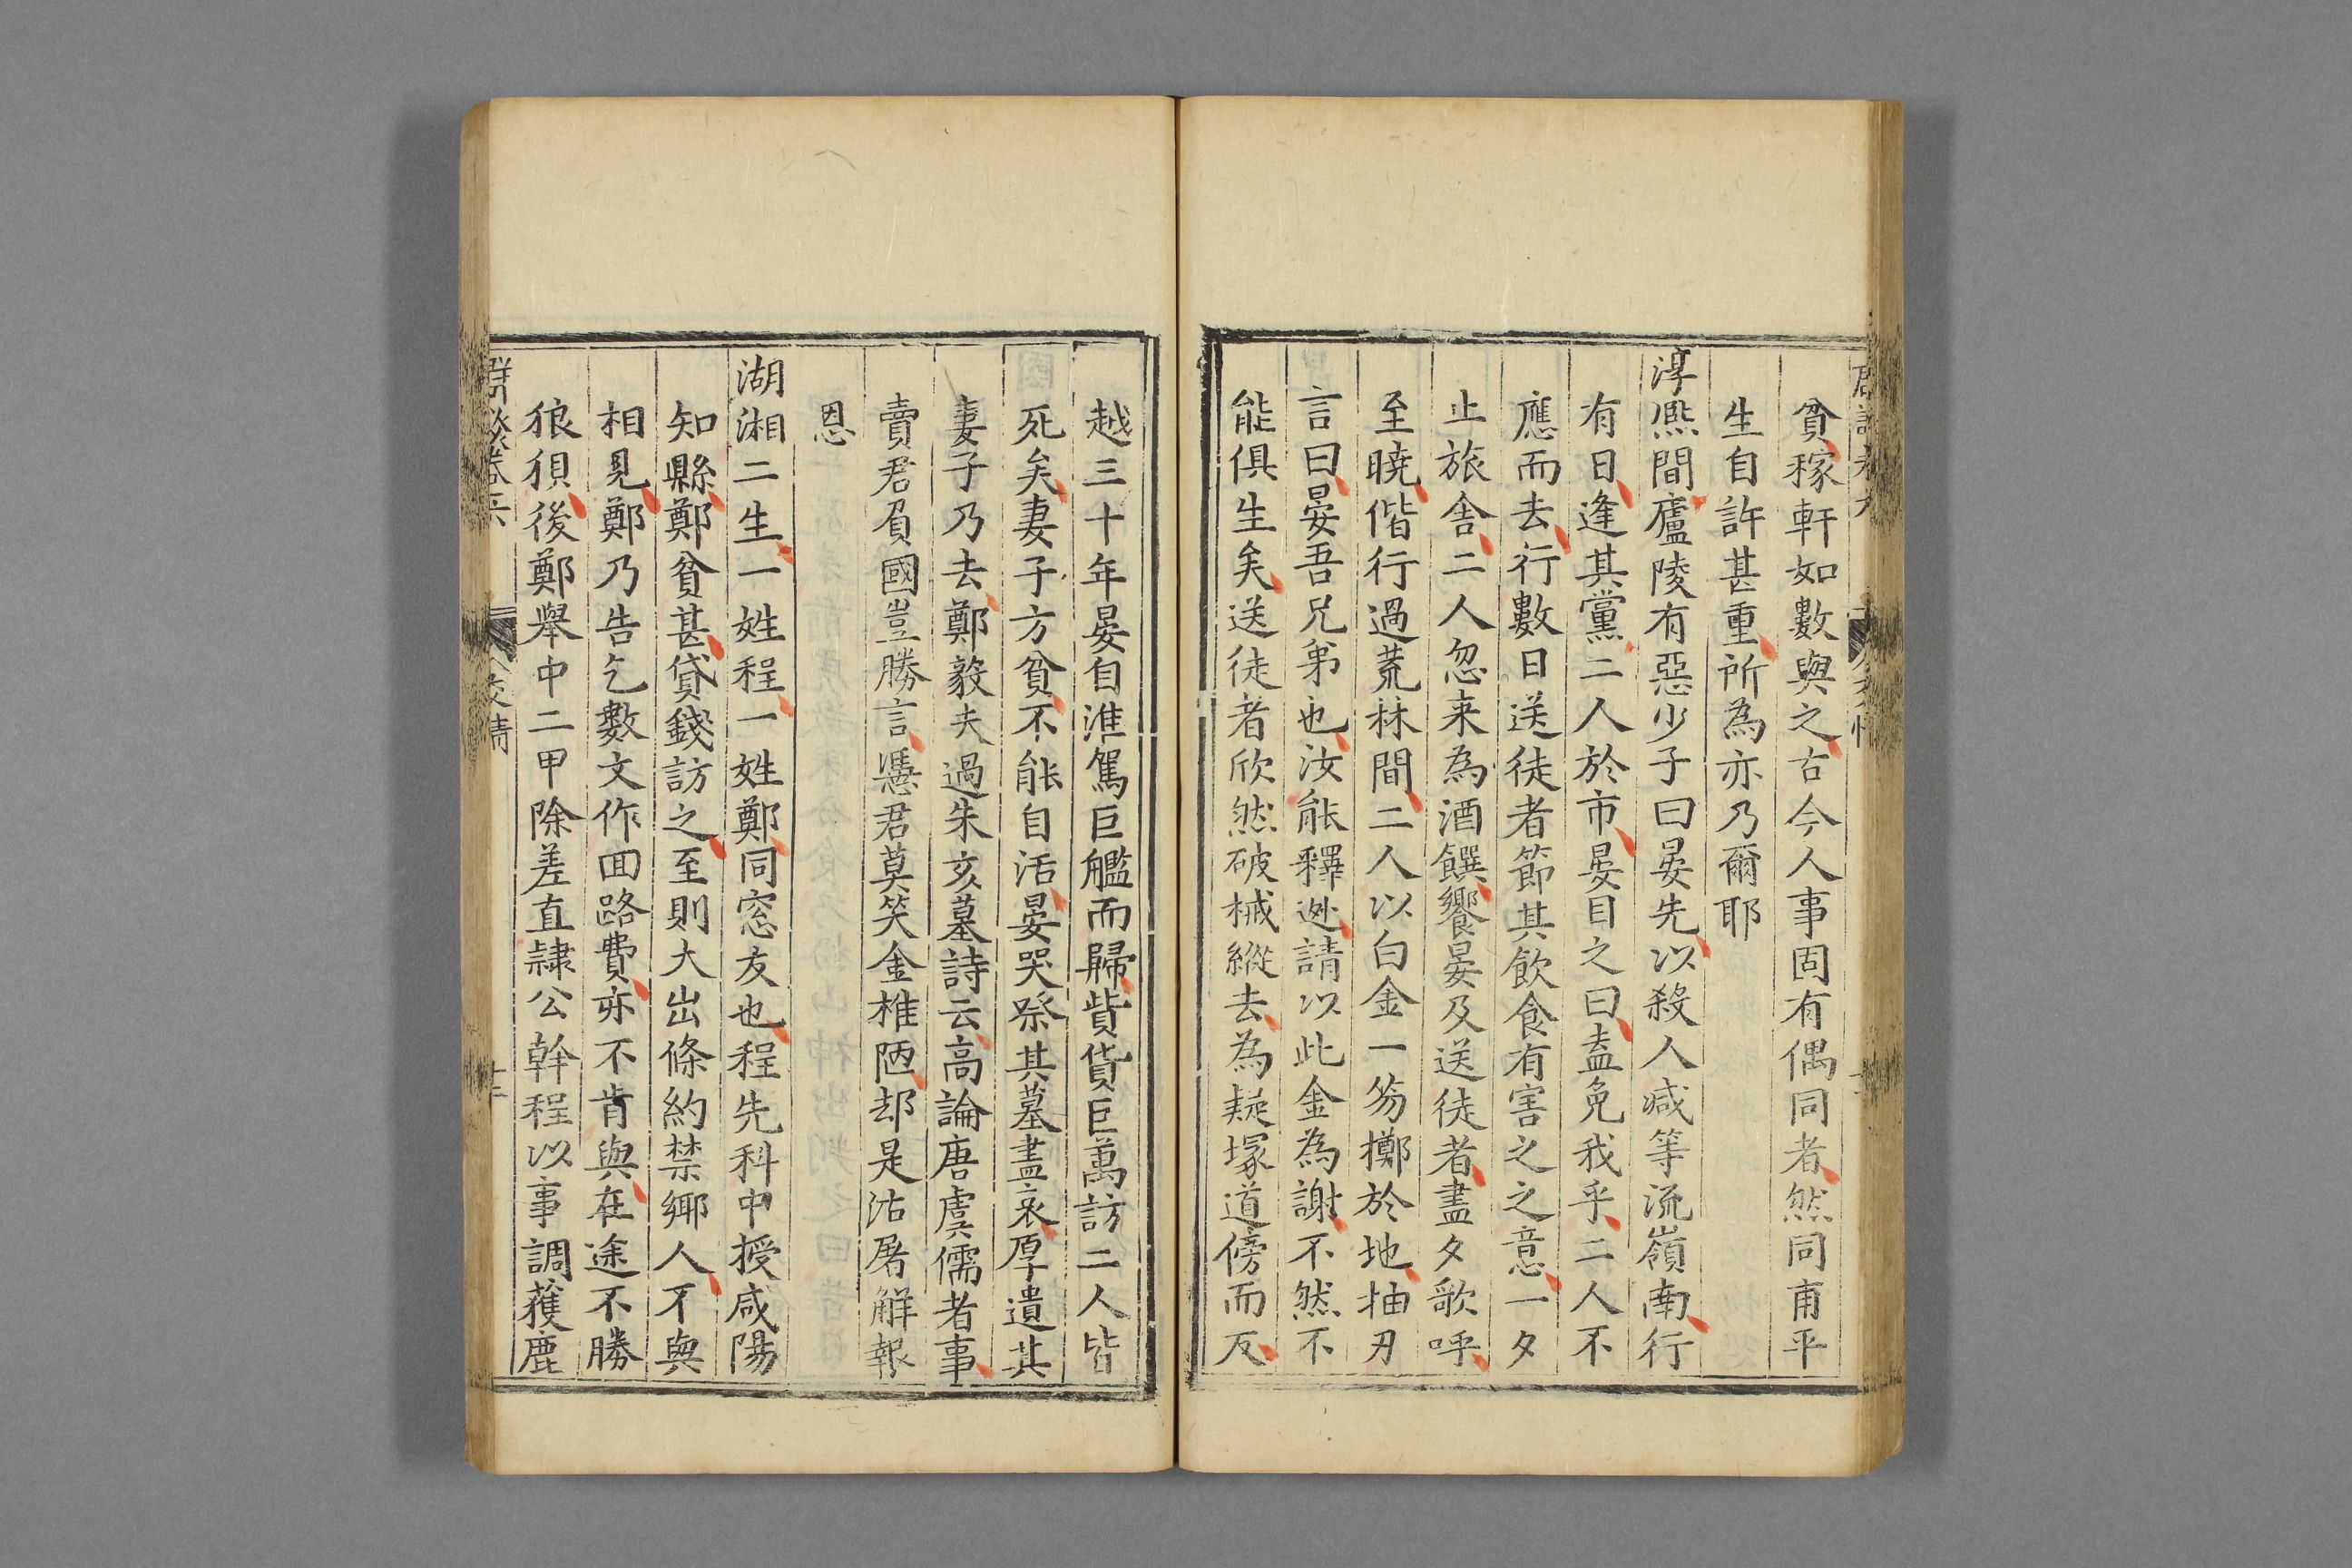 貧稼軒如數與之古今人事固有偶同者然同甫平
生自許甚重所為亦乃爾耶
淳熈間廬陵有惡少子曰晏先以殺人减等流嶺南行
有日逢其黨二人於市晏目之曰盍免我乎二人不
應而去行數日送徒者節其飲食有害之之意一夕
止旅舍二人忽来為酒饌饗晏及送徒者盡夕歌呼
至曉偕行過荒林間二人以白金一笏擲於地抽刃
言曰晏吾兄弟也汝能釋迯請以此金為謝不然不
能俱生矣送徒者欣然破械縱去為疑塚道傍而反
越三十年晏自淮駕巨艦而歸貲貨巨萬訪二人皆
死矣妻子方貧不能自活晏哭祭其墓盡哀厚遺其
妻子乃去鄭毅夫過朱亥墓詩云高論唐虞儒者事
賣君負國豈勝言憑君莫笑金椎陋却是沽屠觧報
恩
湖湘二生一姓程一姓鄭同窓友也程先科中授咸陽
知縣鄭貧甚貸錢訪之至則大出條約禁鄉人不與
相見鄭乃告乞數文作囬路費亦不肯與在途不勝
狼狽後鄭舉中二甲除差直隸公幹程以事調蒦鹿
群談卷六
交情